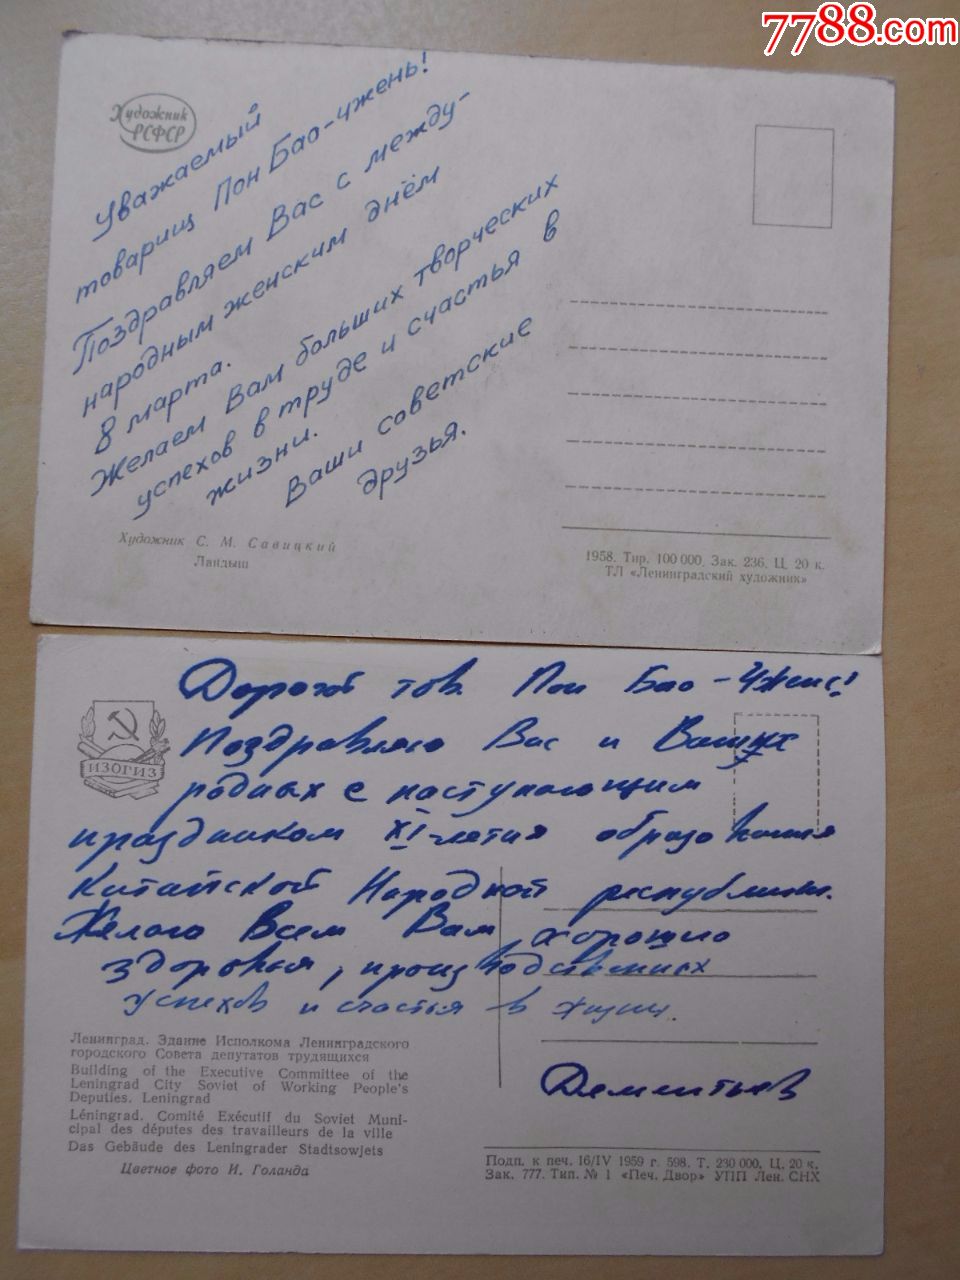 7788.com
Художник
РСФСР
Уважаемый
товарищ Пон Бао-чжень!
Поздравляем Вас с между-
народным женским днём
8 марта.
Желаем Вам больших творческих
успехов в труде и счастья в
жизни.
Ваши советские
друзья.
Художник С. М. Савицкий
Ландыш
1958. Тир. 100 000. Зак. 236. Ц. 20 к.
ТЛ «Ленинградский художник»
Дорогой тов. Пон Бао-Чжень!
ИЗОГИЗ
Поздравляю Вас и Ваших
родных с наступающим
праздником XI-летия образования
Китайской Народной республики.
Желаю Всем Вам хорошего
здоровья, производственных
успехов и счастья в жизни.
Дементьев
Ленинград. Здание Исполкома Ленинградского
городского Совета депутатов трудящихся
Building of the Executive Committee of the
Leningrad City Soviet of Working People's
Deputies. Leningrad
Léningrad. Comité Exécutif du Soviet Muni-
cipal des députes des travailleurs de la ville
Das Gebäude des Leningrader Stadtsowjets
Цветное фото И. Голанда
Подп. к печ. 16/IV 1959 г. 598. Т. 230 000. Ц. 20 к.
Зак. 777. Тип. № 1 «Печ. Двор» УПП Лен. СНХ